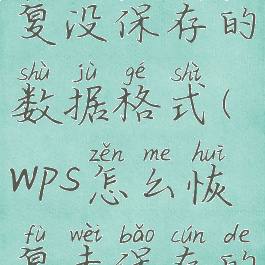 复没保存的
shù jù gé shì
数据格式(
zěn me huī
WPS怎么恢
fù wèi bǎo cún de
复未保存的